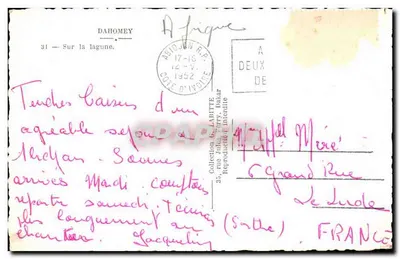 DAHOMEY
Afrique
31 - Sur la lagune.
ABIDJAN R.P.
17-
1952
COTE D'IVOIRE
A
DEUX
DE
Tendres baisers d'un
agréable séjour à
Abidjan. Sommes
arrivés Mardi. comptons
repartir samedi. T'écrirai
plus longuement au
Jacqueline
Collection G. LABITTE
35, rue Jules Ferry, Dakar
Reproduction interdite
Méré
6 Grand Rue
Le Lude
(Sarthe)
FRANCE